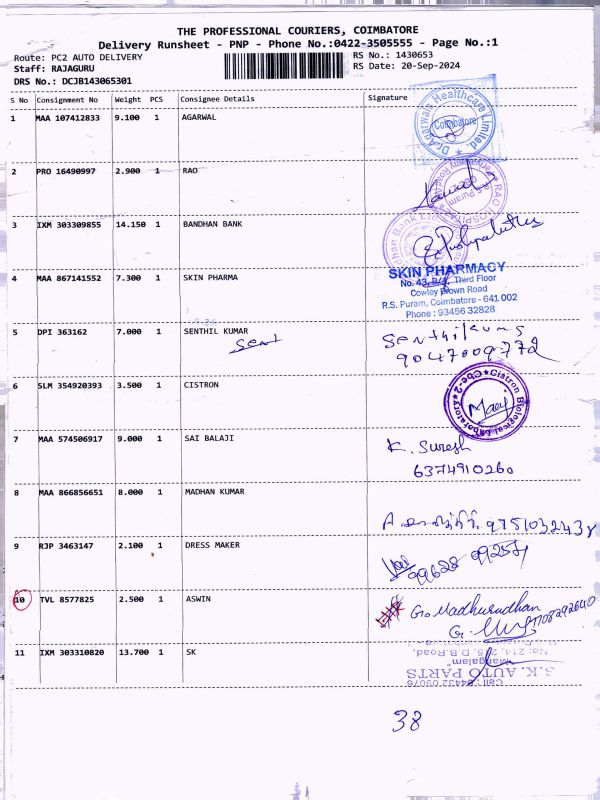 THE PROFESSIONAL COURIERS, COIMBATORE
Delivery Runsheet - PNP - Phone No.:0422-3505555 - Page No.:1
Route: PC2 AUTO DELIVERY
RS No.: 1430653
Staff: RAJAGURU
RS Date: 20-Sep-2024
DRS No.: DCJB143065301
S No Consignment No Weight PCS Consignee Details Signature
1 MAA 107412833 9.100 1 AGARWAL
Dr.Agarwals Healthcare Limited.
Coimbatore
2 PRO 16490997 2.900 1 RAO
RAO HOSPITAL
R.S Puram
3 IXM 303309855 14.150 1 BANDHAN BANK
4 MAA 867141552 7.300 1 SKIN PHARMA
SKIN PHARMACY
No. 43, Third Floor
Cowley Brown Road
R.S. Puram, Coimbatore - 641 002
Phone : 93456 32828
5 DPI 363162 7.000 1 SENTHIL KUMAR
Sent
Senthilkumar
9047009772
6 SLM 354920393 3.500 1 CISTRON
Cistron Biological Laboratory
Cbe-2
7 MAA 574506917 9.000 1 SAI BALAJI
K. Suresh
6374910260
8 MAA 866856651 8.000 1 MADHAN KUMAR
9 RJP 3463147 2.100 1 DRESS MAKER
99628 99257
10 TVL 8577825 2.500 1 ASWIN
G. Madhusudhan
11 IXM 303310820 13.700 1 SK
No: 214, 215, D.B.Road,
"Mangalam"
S.K. AUTO PARTS
Cell : 94432 09076
38